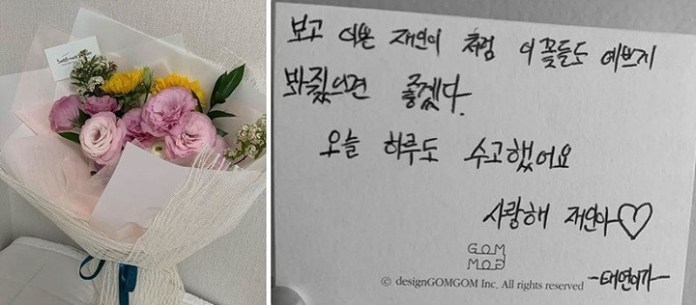 보고 이쁜 재연이 처럼 이 꽃들도 예쁘게
봐줬으면 좋겠다.
오늘 하루도 수고했어요
사랑해 재연아♡
GOM
GOM
© designGOMGOM Inc. All rights reserved
-태연이가-